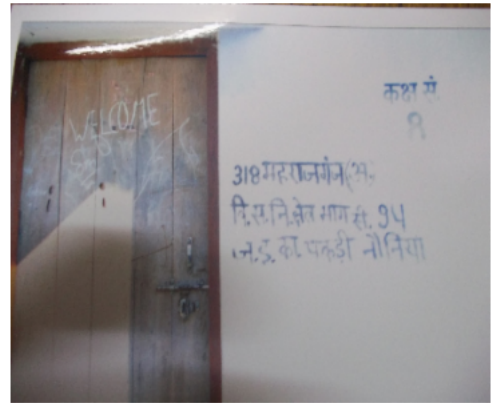 WELCOME
कक्ष सं.
318 महराजगंज (अ.
वि.स.नि.क्षेत्र भाग सं. 94
ज.इ.का. पकड़ी नौनिया